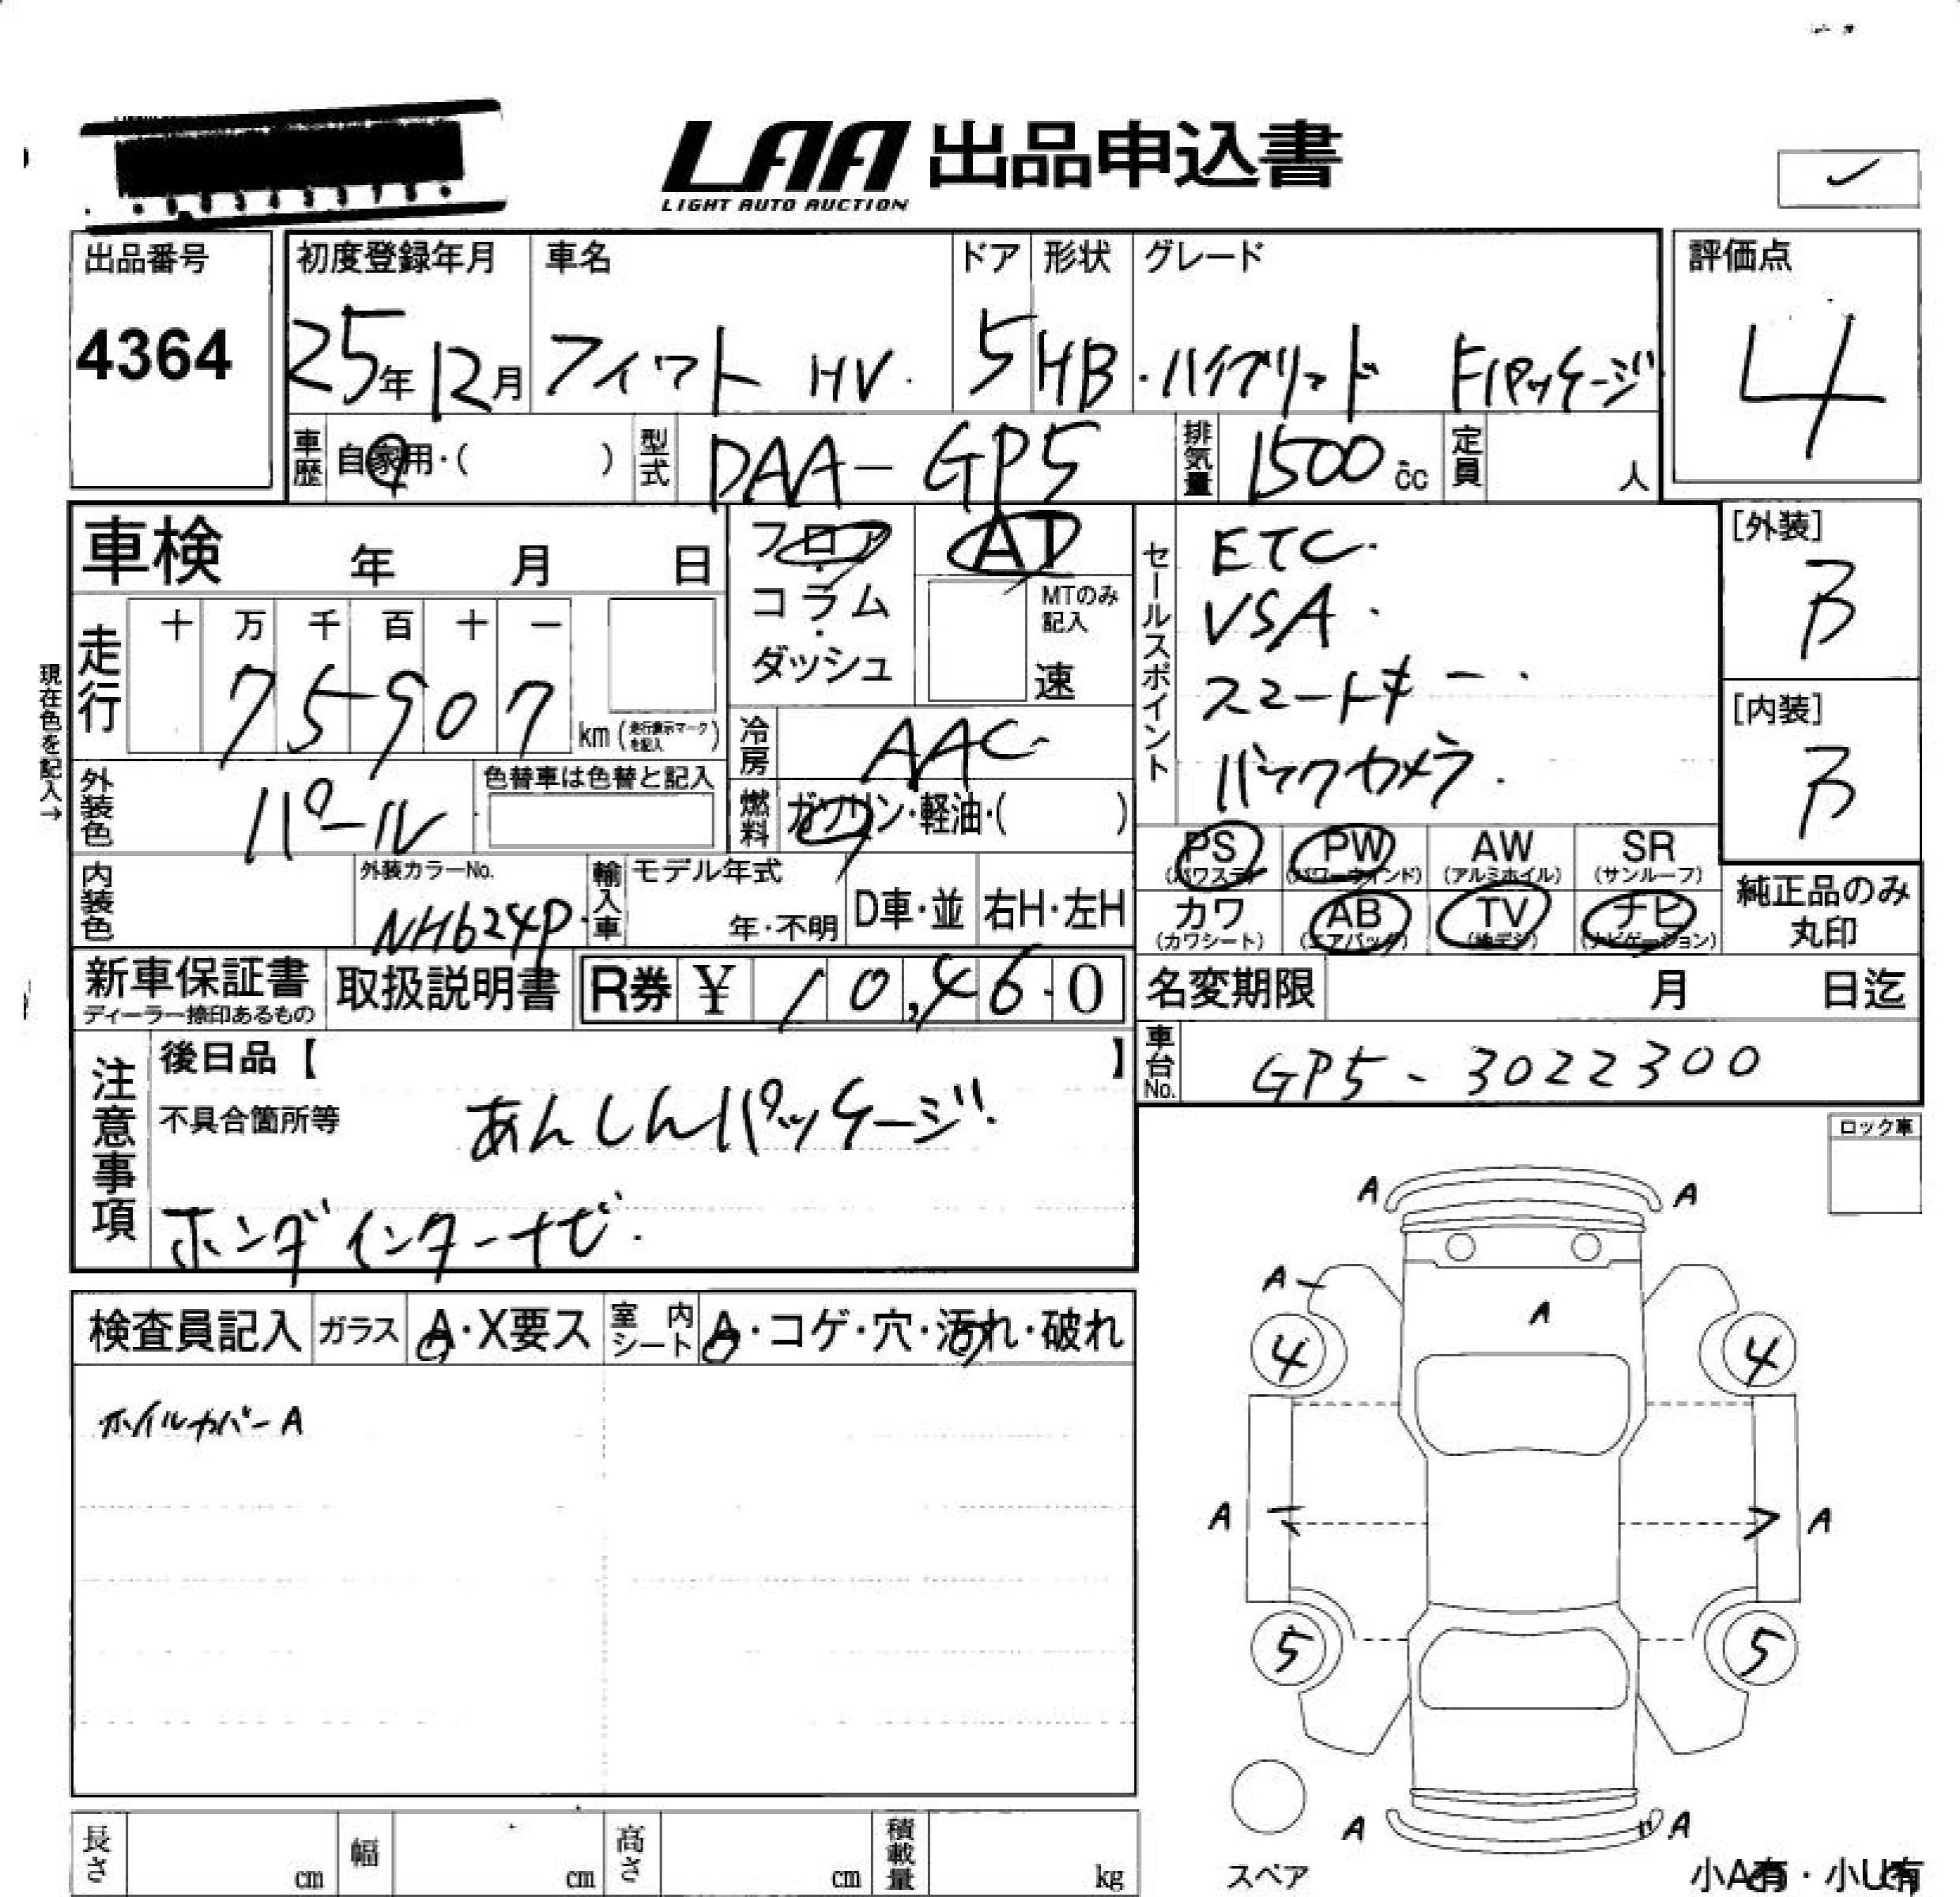 LAA 出品申込書
LIGHT AUTO AUCTION
出品番号
4364
初度登録年月 車名 ドア 形状 グレード
25年12月 フィット HV. 5 HB ・ハイブリッド Fパッケージ
評価点
4
車歴 自家用・( ) 型式 DAA-GP5 排気量 1500cc 定員 人
車検 年 月 日
フロア・コラム・ダッシュ
AT
MTのみ記入
速
走行
十 万 千 百 十 一
75907
km (走行表示マークを記入)
現在色を記入→
冷房 AAC
外装色 パール
色替車は色替と記入
燃料 ガソリン・軽油・( )
内装色
外装カラーNo.
NH624P
輸入車 モデル年式
年・不明 D車・並 右H・左H
セールスポイント
ETC.
VSA.
スマートキー.
バックカメラ.
[外装]
B
[内装]
B
PS PW AW SR
(パワステ) (パワーウインド) (アルミホイル) (サンルーフ)
カワ AB TV ナビ
(カワシート) (エアバック) (地デジ) (ナビゲーション)
純正品のみ
丸印
新車保証書
ディーラー捺印あるもの
取扱説明書 R券 ¥ 10,460
名変期限 月 日迄
車台No. GP5-3022300
注意事項
後日品【 】
不具合箇所等 あんしんパッケージ
ホンダインターナビ.
ロック車
検査員記入 ガラス A・X要ス 室内シート A・コゲ・穴・汚れ・破れ
ホイルカバーA
A A
A A
4 4
A A
5 5
A A
スペア
小A有・小U有
長さ cm 幅 cm 高さ cm 積載量 kg